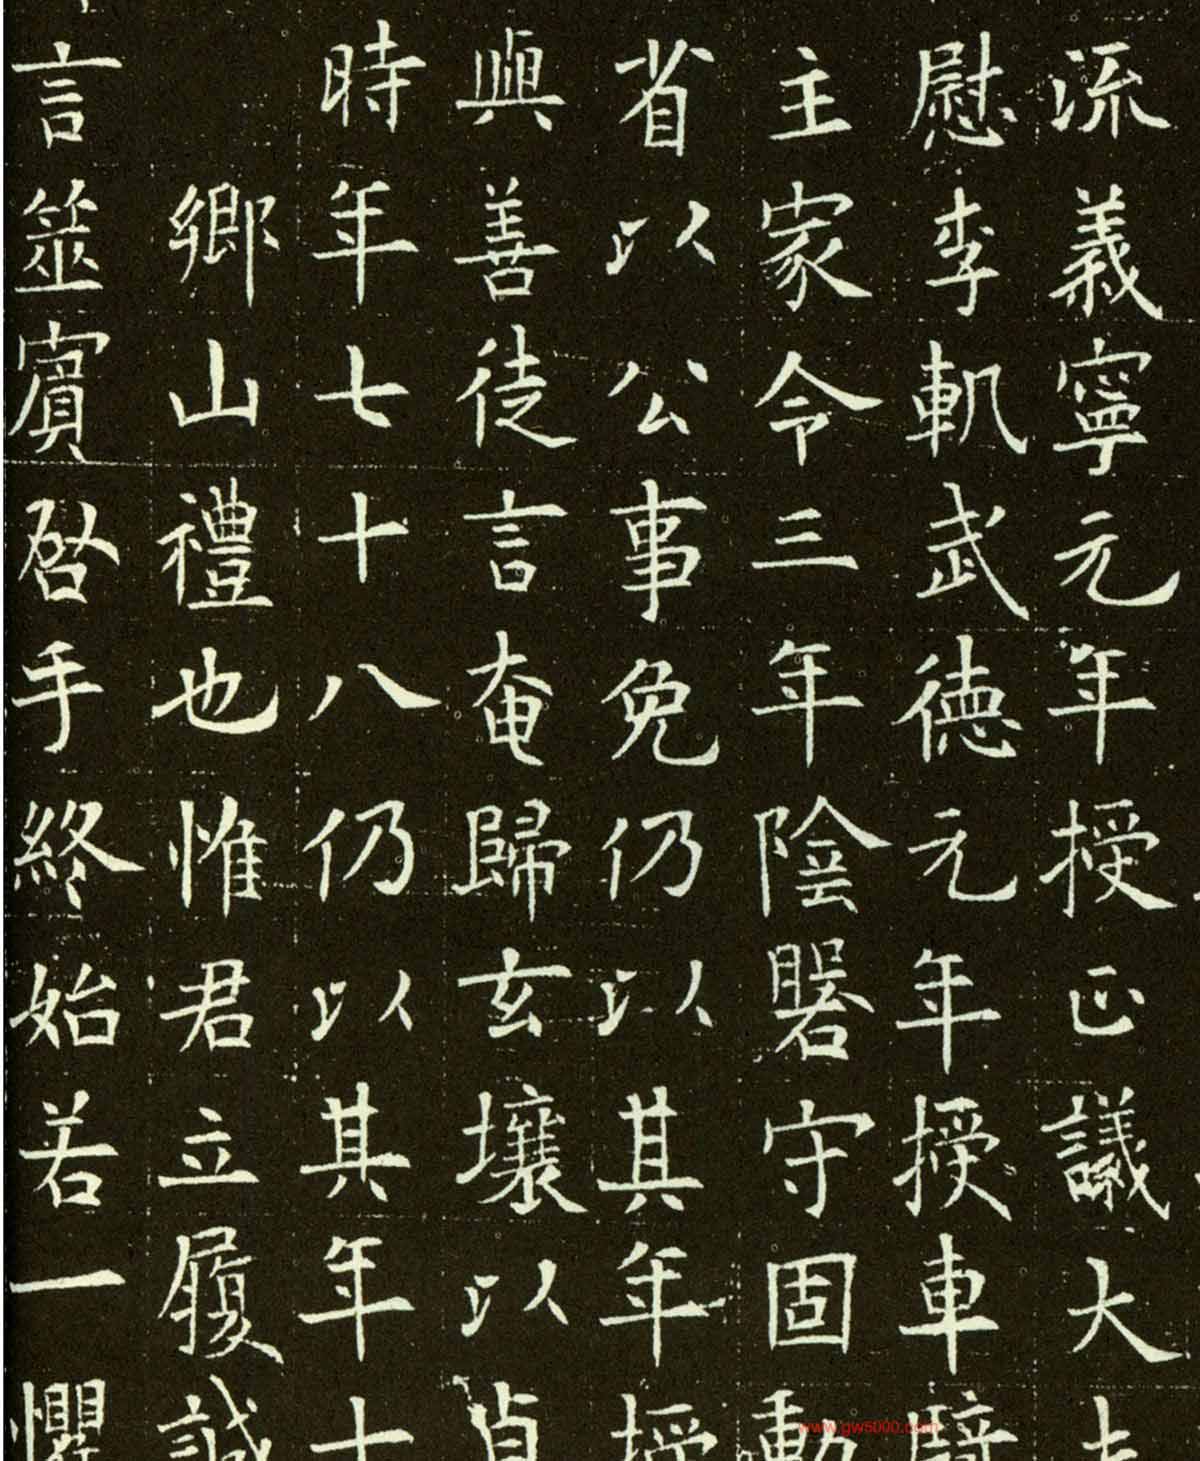 流義寧元年授正議大
慰李軌武德元年授車騎
主家令三年陰守固動
省以公事免仍以其年授
與善徒言奄歸玄壤以貞
時年七十八仍以其年十
鄉山禮也惟君立履誠
言筮賓啓手終始若一懼
www.gw5000.com